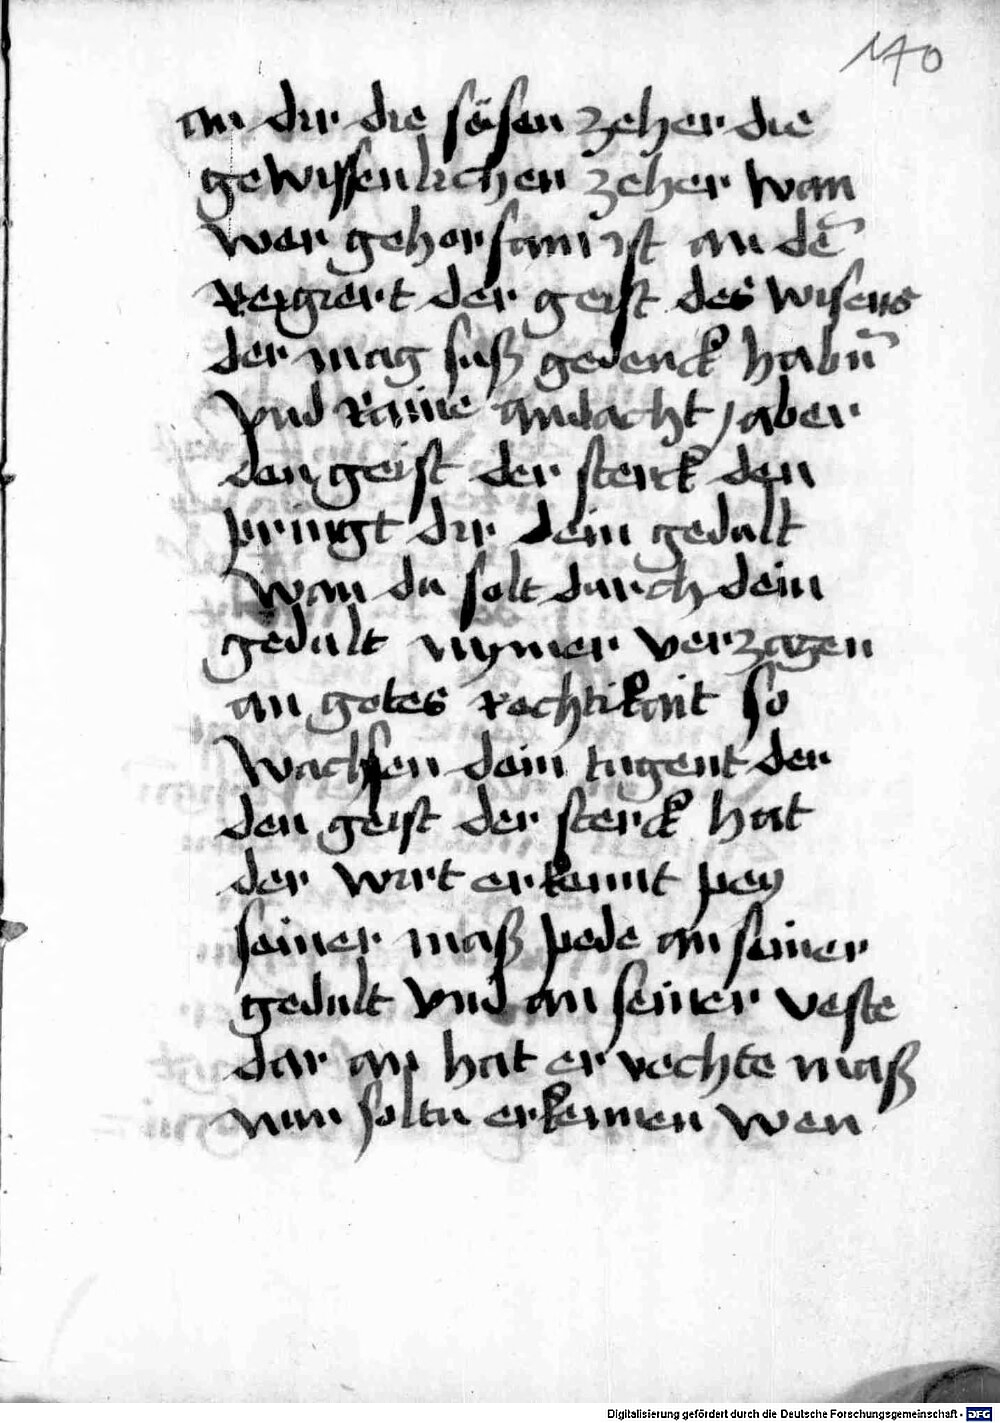 140
an dir die süsen zeher die
gewissenlichen zeher wan
wer gehorsam ist an dē
reigiert der geist des wisens
der mag suß gedenck habn̄
vnd raine andacht / aber
den geist der sterck den
pringt dir dein gedult
wan du solt durch dein
gedult nymer verzagen
an gotes rechtikait so
wachsen dein tugent der
den geist der sterck hat
der wirt erkennt pey
seiner maß pede an seiner
gedult vnd an seiner veste
dar an hat er rechte maß
nun soltu erkennen wen
Digitalisierung gefördert durch die Deutsche Forschungsgemeinschaft - DFG